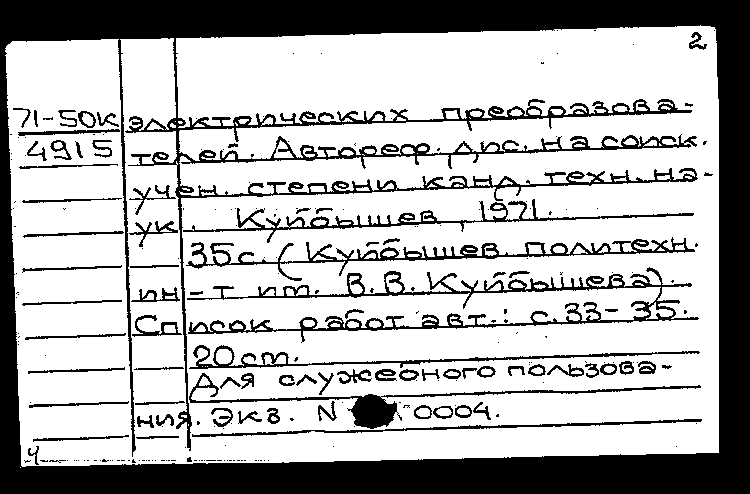 2
71-50к электрических преобразова-
4915 телей. Автореф. дис. на соиск.
учен. степени канд. техн. на-
ук. Куйбышев, 1971.
35 с. (Куйбышев. политехн.
ин-т им. В.В. Куйбышева).
Список работ авт.: с. 33-35.
20 см.
Для служебного пользова-
ния. Экз. N 0004.
ч